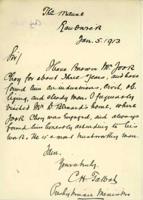 The Manse
Renwick
Jan. 5. 1913
Sir/
I have known Mr. Jook
Choy for about three years, and have
found him an industrious, civil, ob
liging, and steady man. I frequently
visited Mr. D. Edward's home, where
Jook Choy was engaged, and always
found him honestly attending to his
work. He is a most trustworthy man.
I am.
Yours truly,
C. H. Talbot
Presbyterian Minister